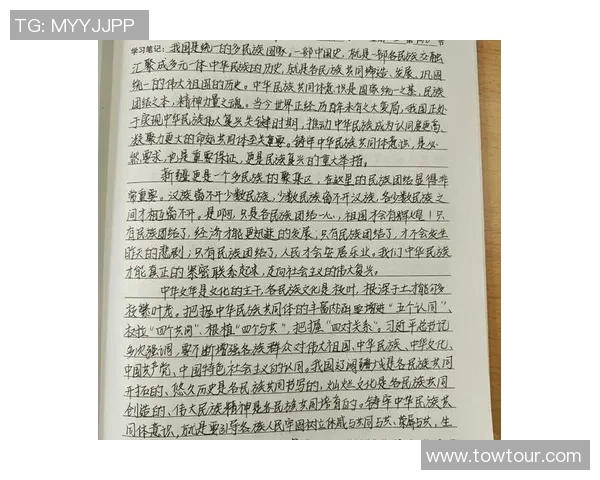 TG: MYYJJPP
学习笔记：我国是统一的多民族国家。一部中国史，就是一部各民族交融
汇聚成多元一体中华民族的历史，就是各民族共同缔造、发展、巩固
统一的伟大祖国的历史。中华民族共同体意识是国家统一之基、民族
团结之本、精神力量之魂。当今世界正经历百年未有之大变局，我国正处
于实现中华民族伟大复兴关键时期，推动中华民族成为认同度更高、
凝聚力更大的命运共同体至关重要。铸牢中华民族共同体意识，是必
然要求，也是重要保证，更是民族复兴的重大举措。
新疆更是一个多民族的聚集区，在这里的民族团结显得非
常重要。汉族离不开少数民族，少数民族离不开汉族，各少数民族之
间才相互离不开。是啊，只是各民族团结一心，祖国才会有辉煌！只
有民族团结了，经济才能更迅速的发展；只有民族团结了，才不会发生
昨天的悲剧；只有民族团结了，人民才会安居乐业。我们中华民族
才能真正的紧密联系起来，走向社会主义的伟大复兴。
中华文华是文化的主干，各民族文化是枝叶，根深干土才能够
枝繁叶茂。把握中华民族共同体的丰富内涵要增进“五个认同”、
树立“四个共同”、根植“四个与共”，把握“四对关系”。习近平总书记
多次强调，要不断增强各族群众对伟大祖国、中华民族、中华文化、
中国共产党、中国特色社会主义的认同。我国辽阔疆域是各民族共同
开拓的、悠久历史是各民族共同书写的，灿烂文化是各民族共同
创造的、伟大民族精神是各民族共同培育的。铸牢中华民族共
同体意识，就是要引导各族人民牢固树立休戚与共、荣辱与共、生
www.towtour.com